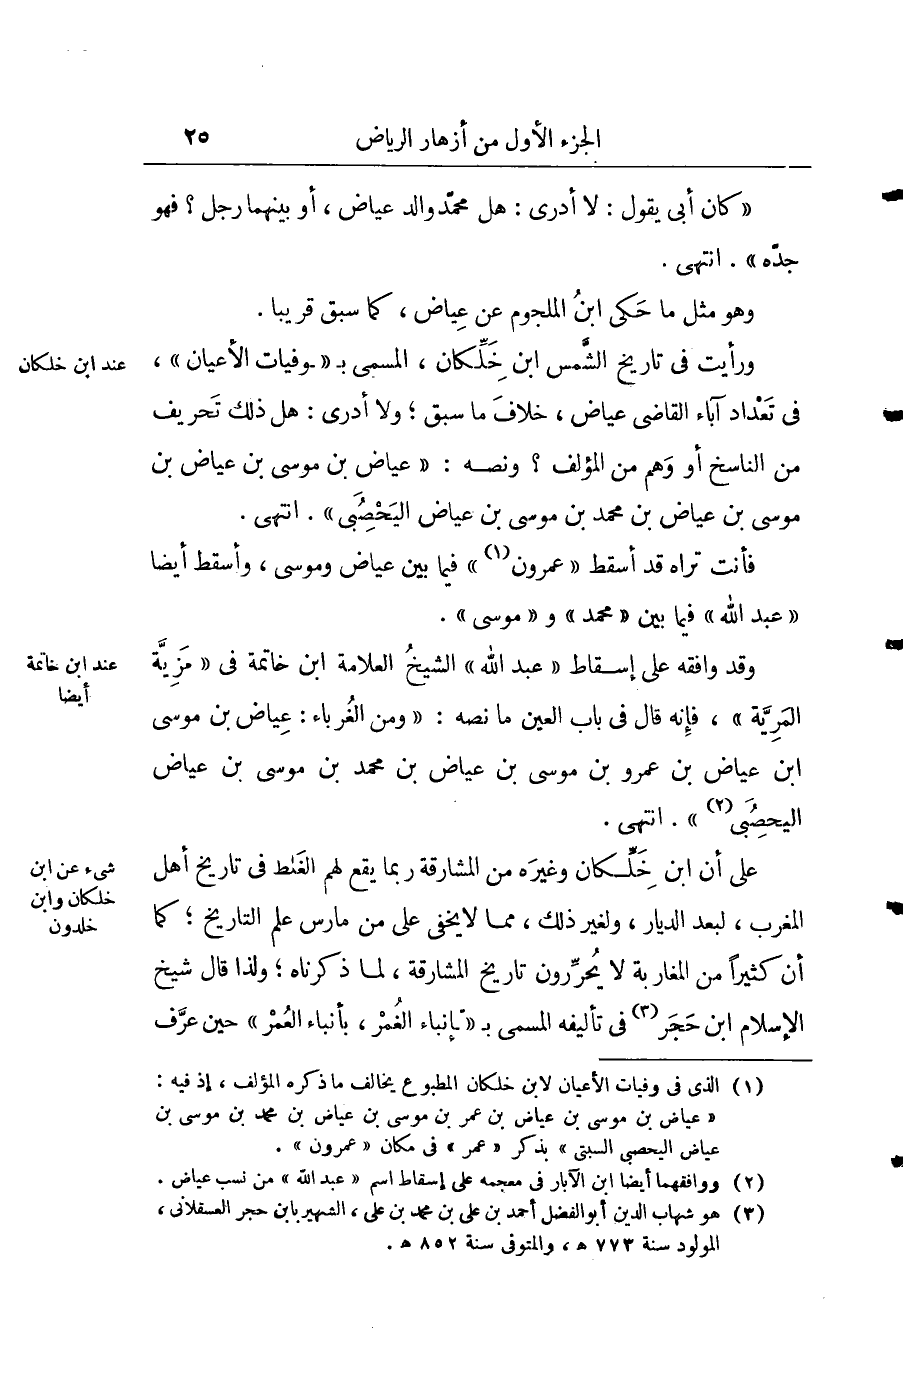 الجزء الأول من أزهار الرياض ٢٥
« كان أبى يقول : لا أدرى : هل محمّد والد عياض ، أو بينهما رجل ؟ فهو
جدّه » . انتهى .
وهو مثل ما حَكى ابنُ الملجوم عن عِياض ، كما سبق قريبا .
ورأيت فى تاريخ الشَّمس ابن خَلِّكان ، المسمى بـ « وفيات الأعيان » ،
عند ابن خلكان
فى تَعْداد آباء القاضى عياض ، خلافَ ما سبق ؛ ولا أدرى : هل ذلك تَحريف
من الناسخ أو وَهم من المؤلف ؟ ونصـه : « عياض بن موسى بن عياض بن
موسى بن عياض بن محمد بن موسى بن عياض اليَحْصُبَِى » . انتهى .
فأنت تراه قد أسقط « عمرون(١) » فيما بين عياض وموسى ، وأسقط أيضا
« عبد الله » فيما بين « محمد » و « موسى » .
وقد وافقه على إسـقاط « عبد الله » الشيخُ العلامة ابن خاتمة فى « مَزِيَّة
عند ابن خاتمة
أيضا
المَرِيَّة » ، فإنه قال فى باب العين ما نصه : « ومن الغُرباء : عِياض بن موسى
ابن عياض بن عمرو بن موسى بن عياض بن محمد بن موسى بن عياض
اليحصُبَِى(٢) » . انتهى .
على أن ابن خَلِّـكان وغيرَه من المشارقة ربما يقع لهم الغَلط فى تاريخ أهل
شىء عن ابن
خلكان وابن
خلدون
المغرب ، لبعد الديار ، ولغير ذلك ، ممـا لايخفى على من مارس علم التاريخ ؛ كما
أن كثيراً من المغاربة لا يُحرِّرون تاريخ المشارقة ، لمـا ذكرناه ؛ ولذا قال شيخ
الإسلام ابن حَجَر(٣) فى تأليفه المسمى بـ « إنباء الغُمْر ، بأنباء العُمْر » حين عرَّف
(١) الذى فى وفيات الأعيان لابن خلكان المطبوع يخالف ما ذكره المؤلف ، إذ فيه :
« عياض بن موسى بن عياض بن عمر بن موسى بن عياض بن محمد بن موسى بن
عياض اليحصبى السبتى » بذكر « عمر » فى مكان « عمرون » .
(٢) ووافقهما أيضا ابن الآبار فى معجمه على إسقاط اسم « عبد الله » من نسب عياض .
(٣) هو شهاب الدين أبوالفضل أحمد بن على بن محمد بن على ، الشهير بابن حجر العسقلانى ،
المولود سنة ٧٧٣ هـ ، والمتوفى سنة ٨٥٢ هـ .